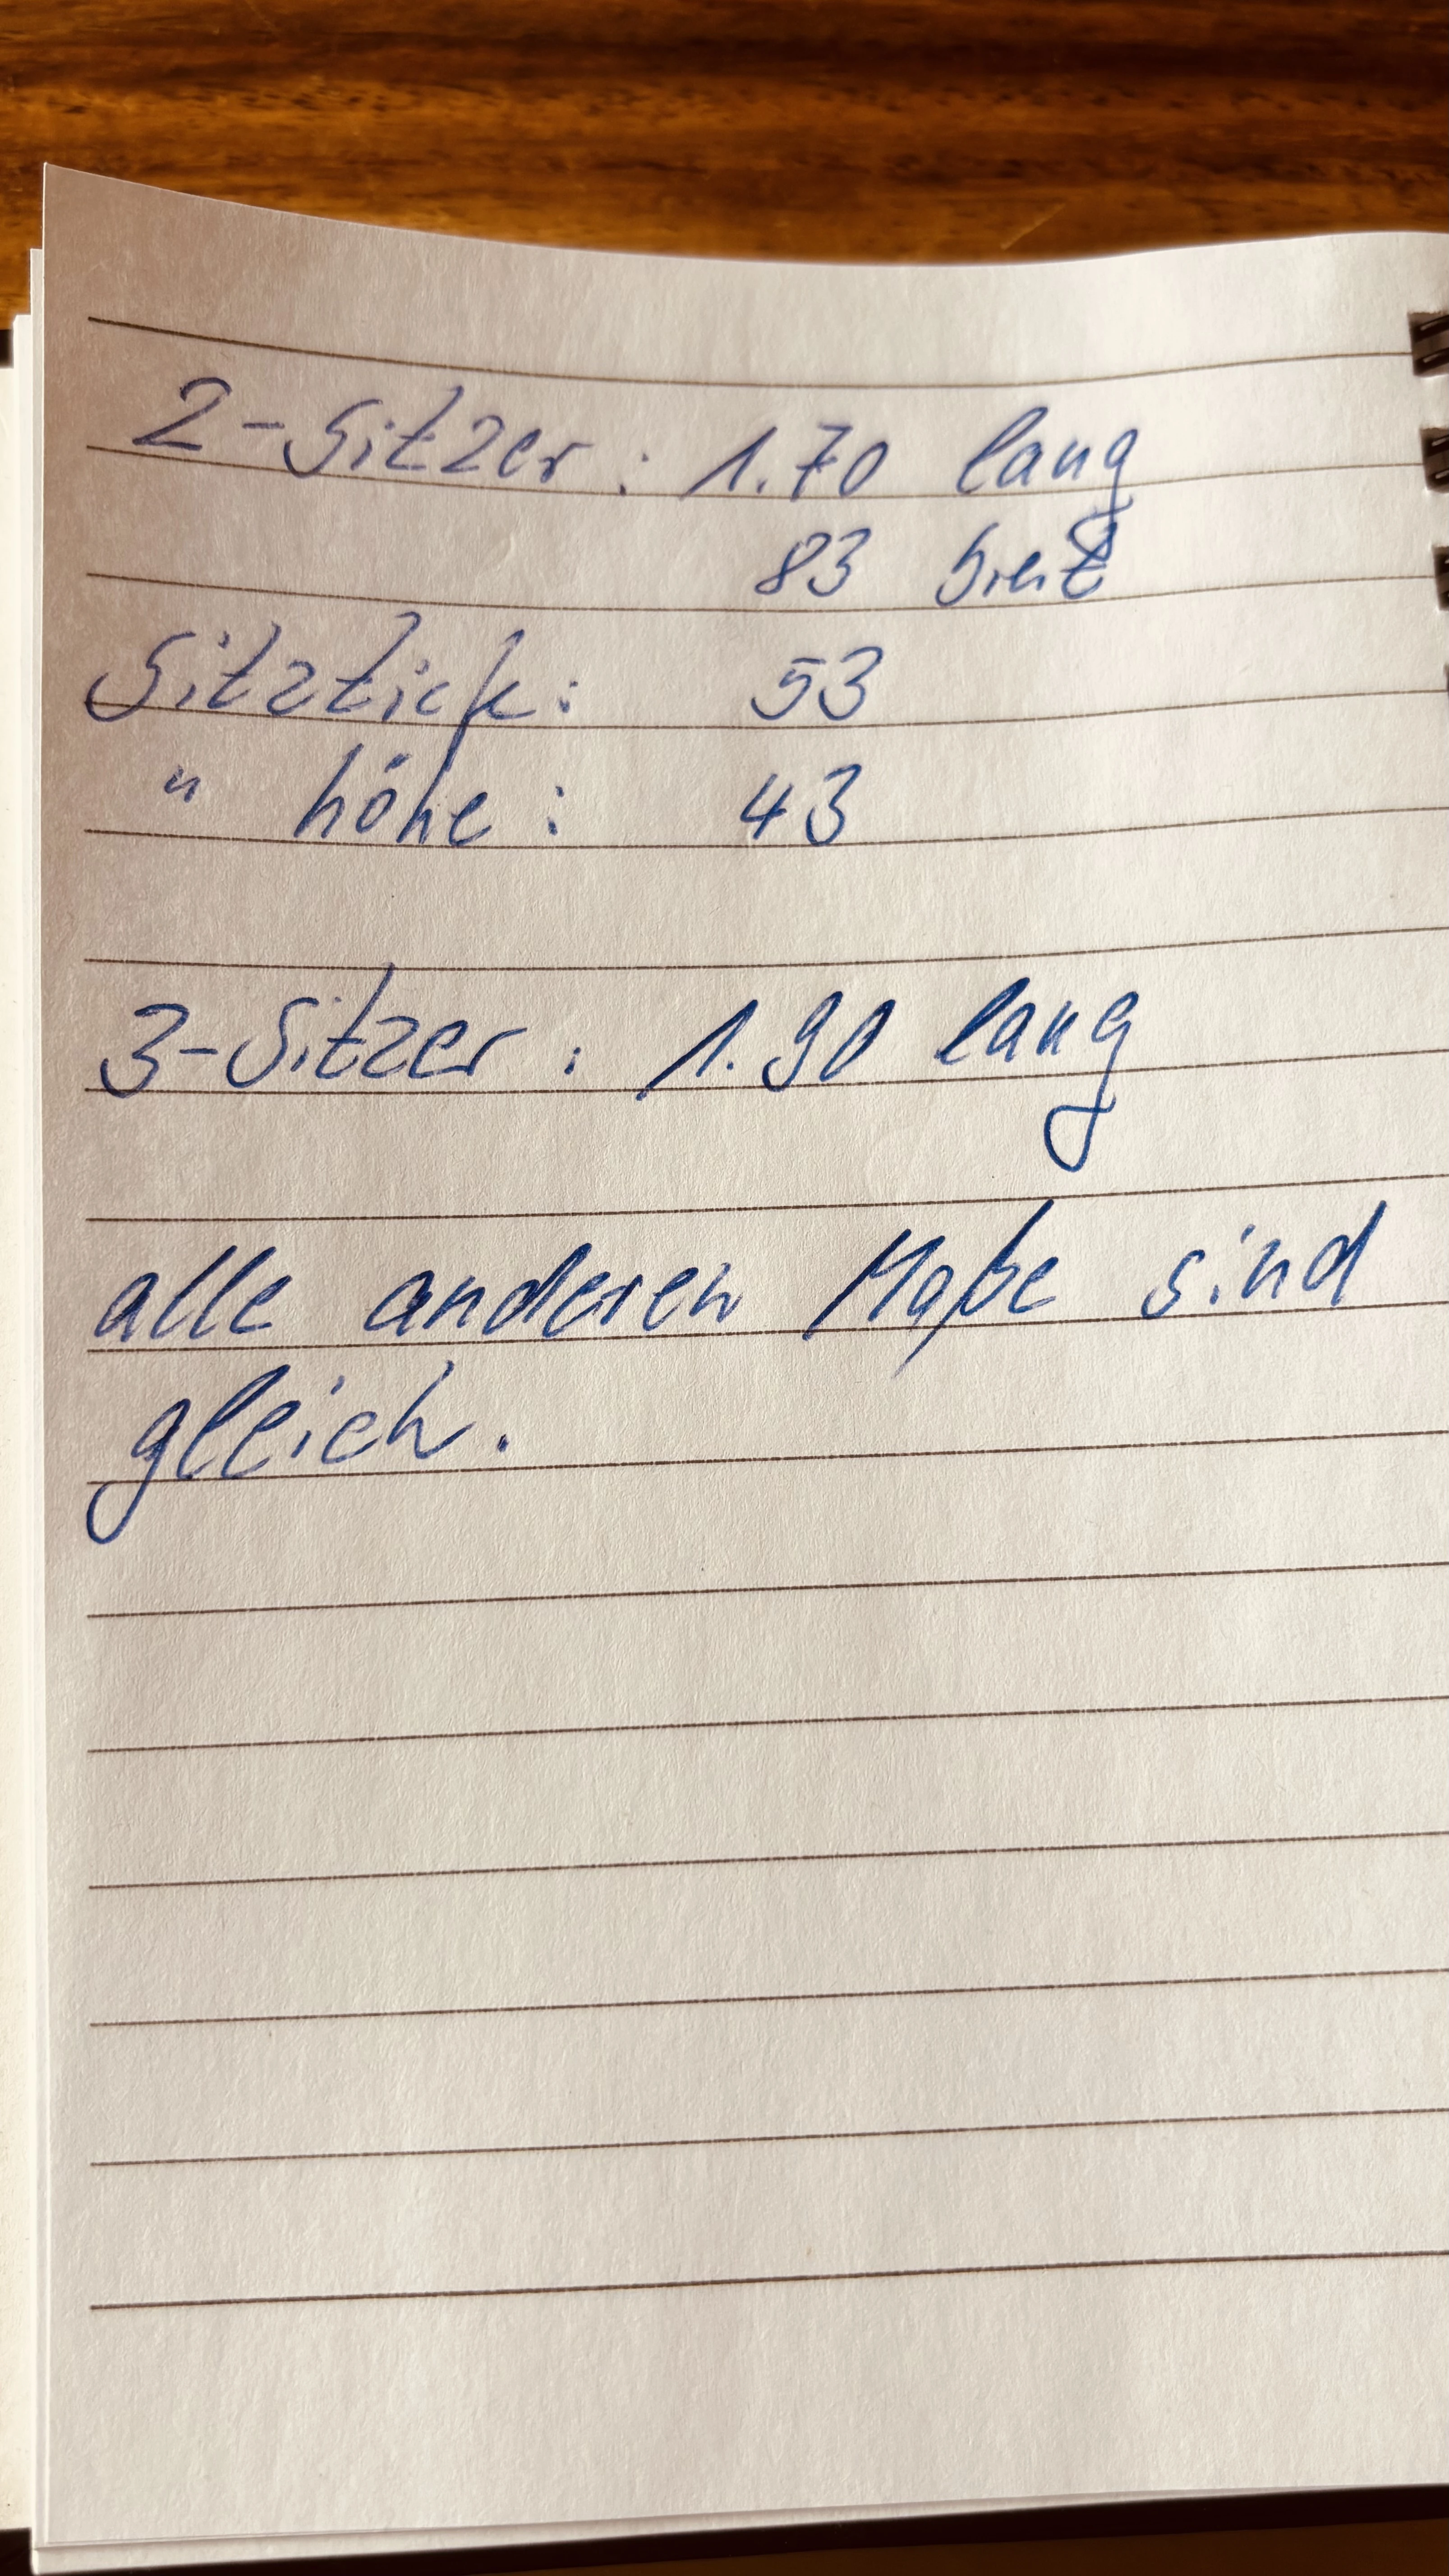 2-Sitzer: 1.70 lang
83 breit
Sitztiefe: 53
" höhe: 43
3-Sitzer: 1.90 lang
alle anderen Maße sind
gleich.